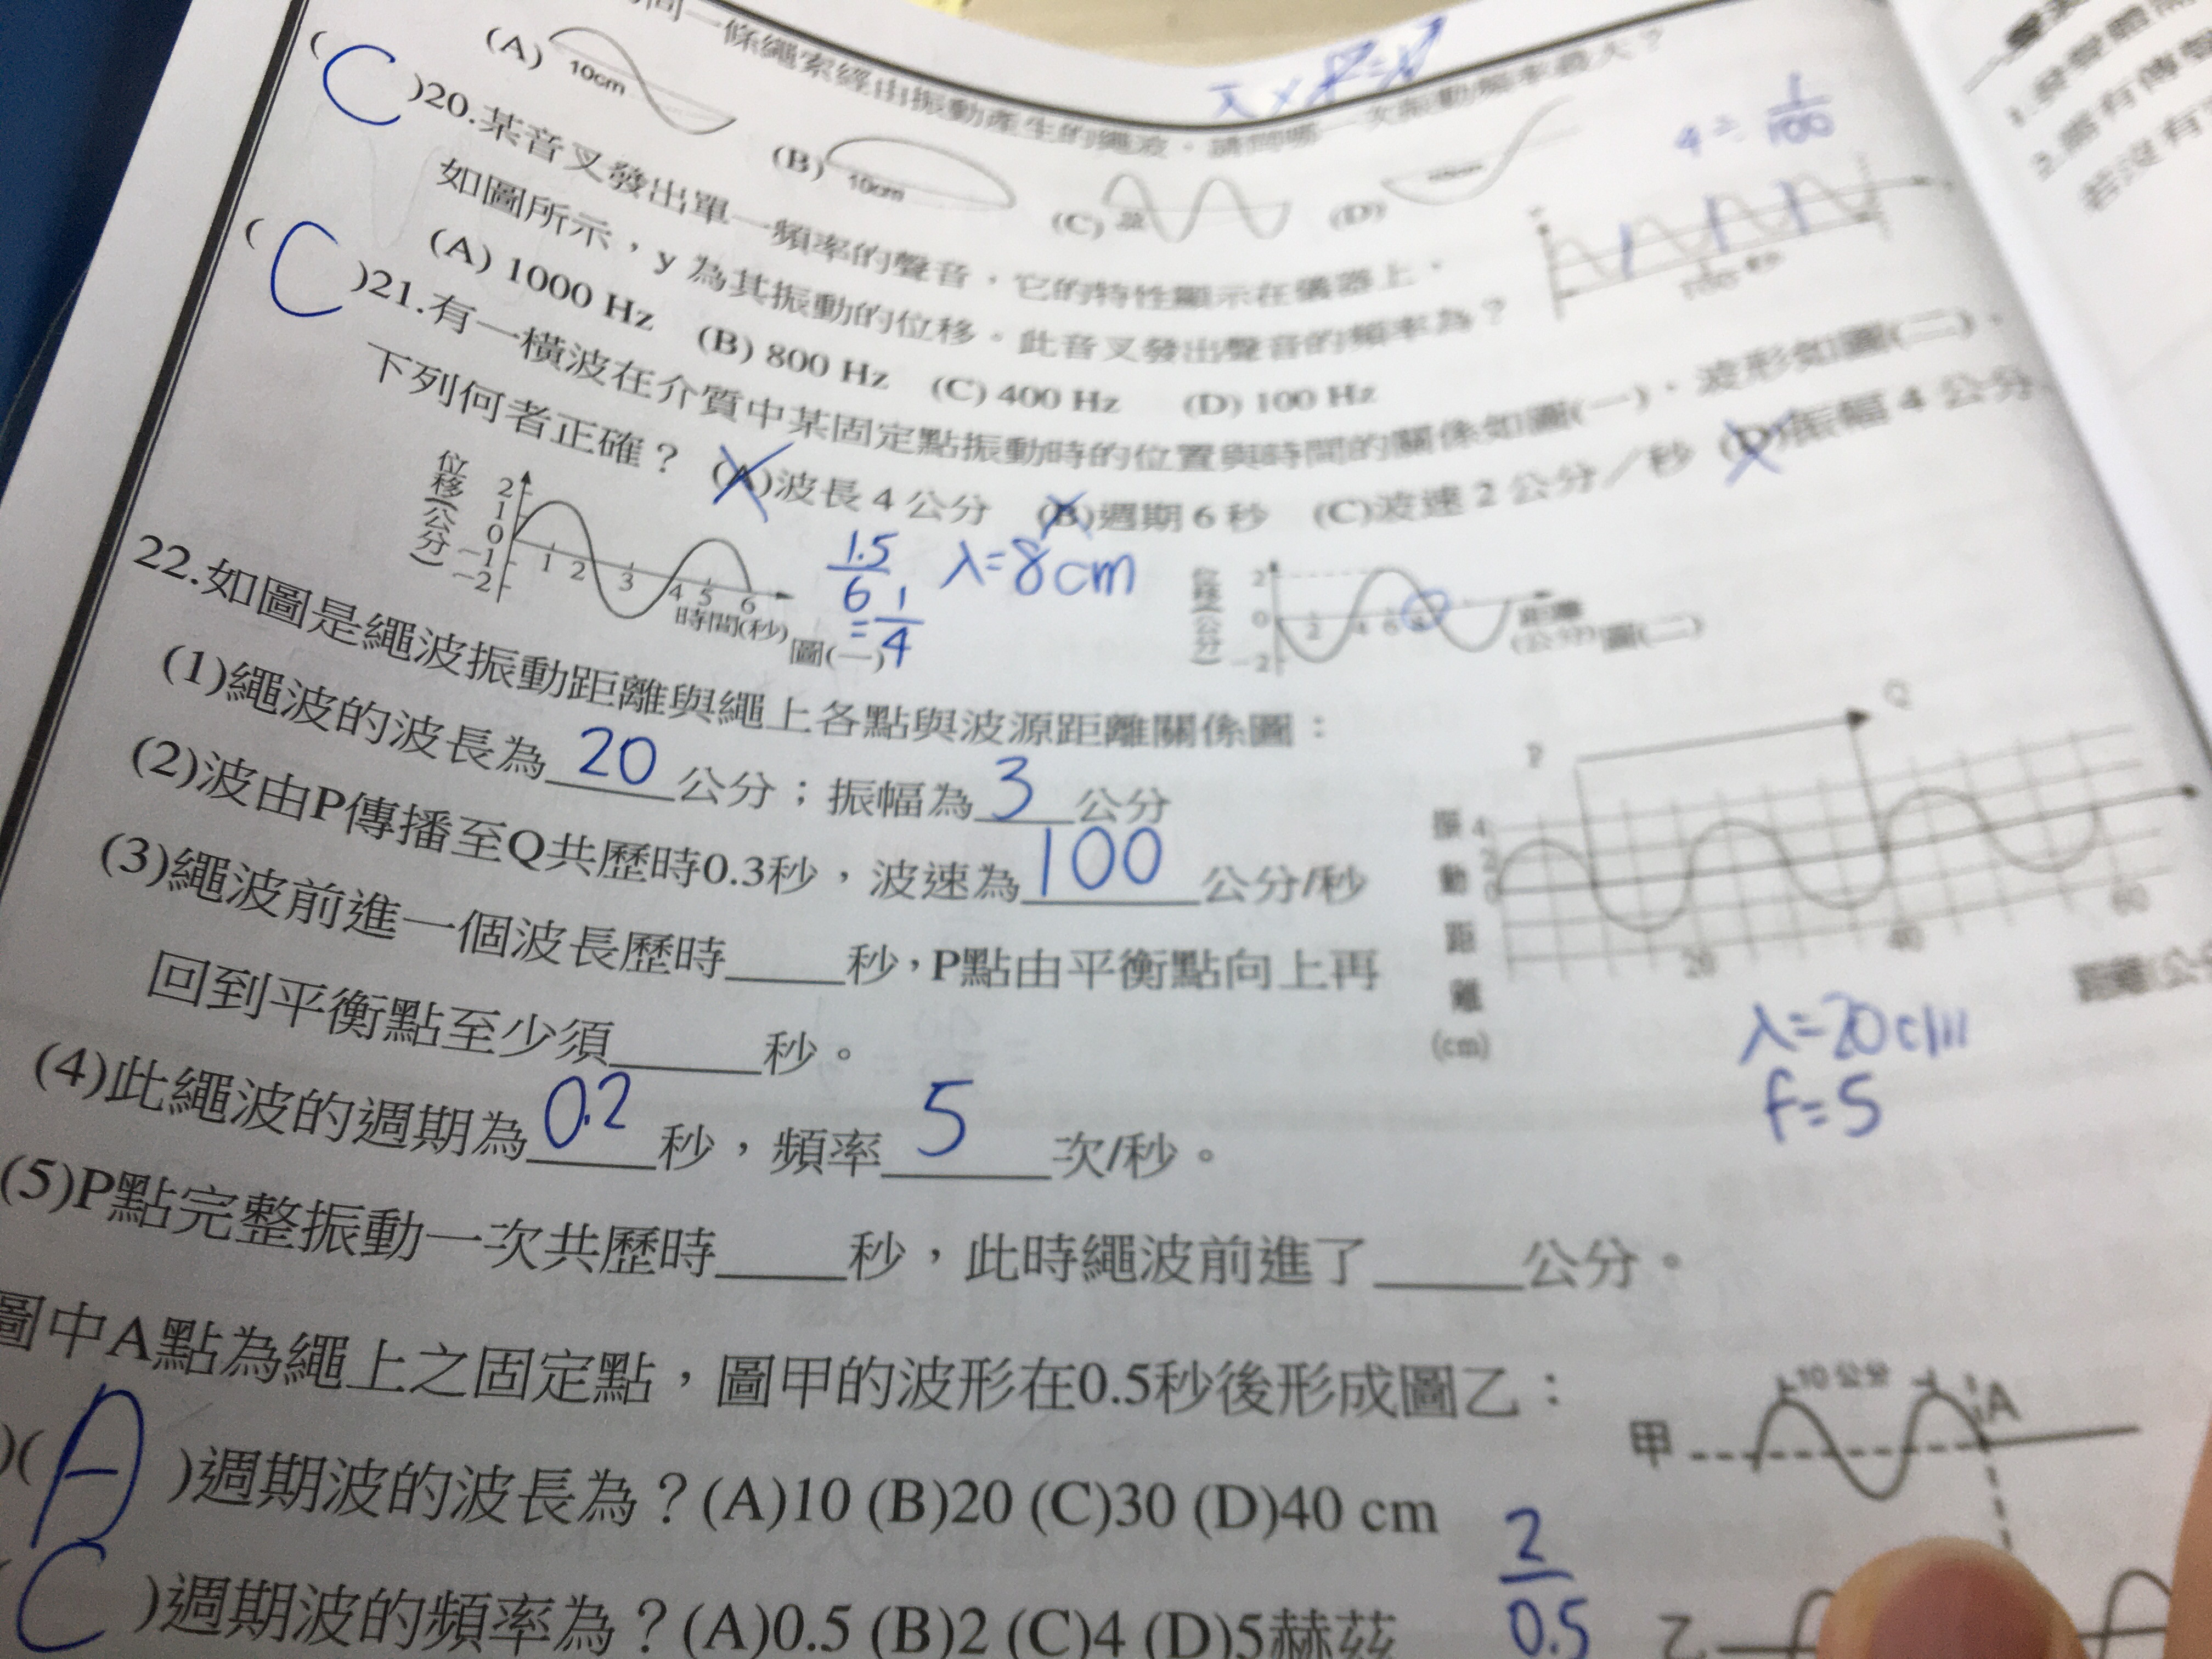 同一條繩索經由振動產生的繩波，請問哪一次振動頻率最大？
(A) 10cm (B) 10cm (C) (D)
4 = 1/100
(C)20.某音叉發出單一頻率的聲音，它的特性顯示在儀器上，
如圖所示，y 為其振動的位移。此音叉發出聲音的頻率為？
(A) 1000 Hz (B) 800 Hz (C) 400 Hz (D) 100 Hz
(C)21.有一橫波在介質中某固定點振動時的位置與時間的關係如圖(一)，波形如圖(二)，
下列何者正確？ (A)波長 4 公分 (B)週期 6 秒 (C)波速 2 公分／秒 (D)振幅 4 公分
位移(公分) 2 1 0 -1 -2
1 2 3 4 5 6
時間(秒) 圖(一)
1.5/6 = 1/4
λ=8cm
位移(公分) 2 0 -2
2 4 6 8
距離(公分) 圖(二)
22.如圖是繩波振動距離與繩上各點與波源距離關係圖：
(1)繩波的波長為 20 公分；振幅為 3 公分
(2)波由P傳播至Q共歷時0.3秒，波速為 100 公分/秒
(3)繩波前進一個波長歷時____秒，P點由平衡點向上再
回到平衡點至少須____秒。
(4)此繩波的週期為 0.2 秒，頻率 5 次/秒。
(5)P點完整振動一次共歷時____秒，此時繩波前進了____公分。
P Q
振動距離(cm) 4 2 0
20 40 60
λ=20cm
f=5
圖中A點為繩上之固定點，圖甲的波形在0.5秒後形成圖乙：
)(A)週期波的波長為？(A)10 (B)20 (C)30 (D)40 cm
(C)週期波的頻率為？(A)0.5 (B)2 (C)4 (D)5赫茲
2/0.5
甲 10公分 A
乙
1.發聲體
2.需有傳聲
若沒有